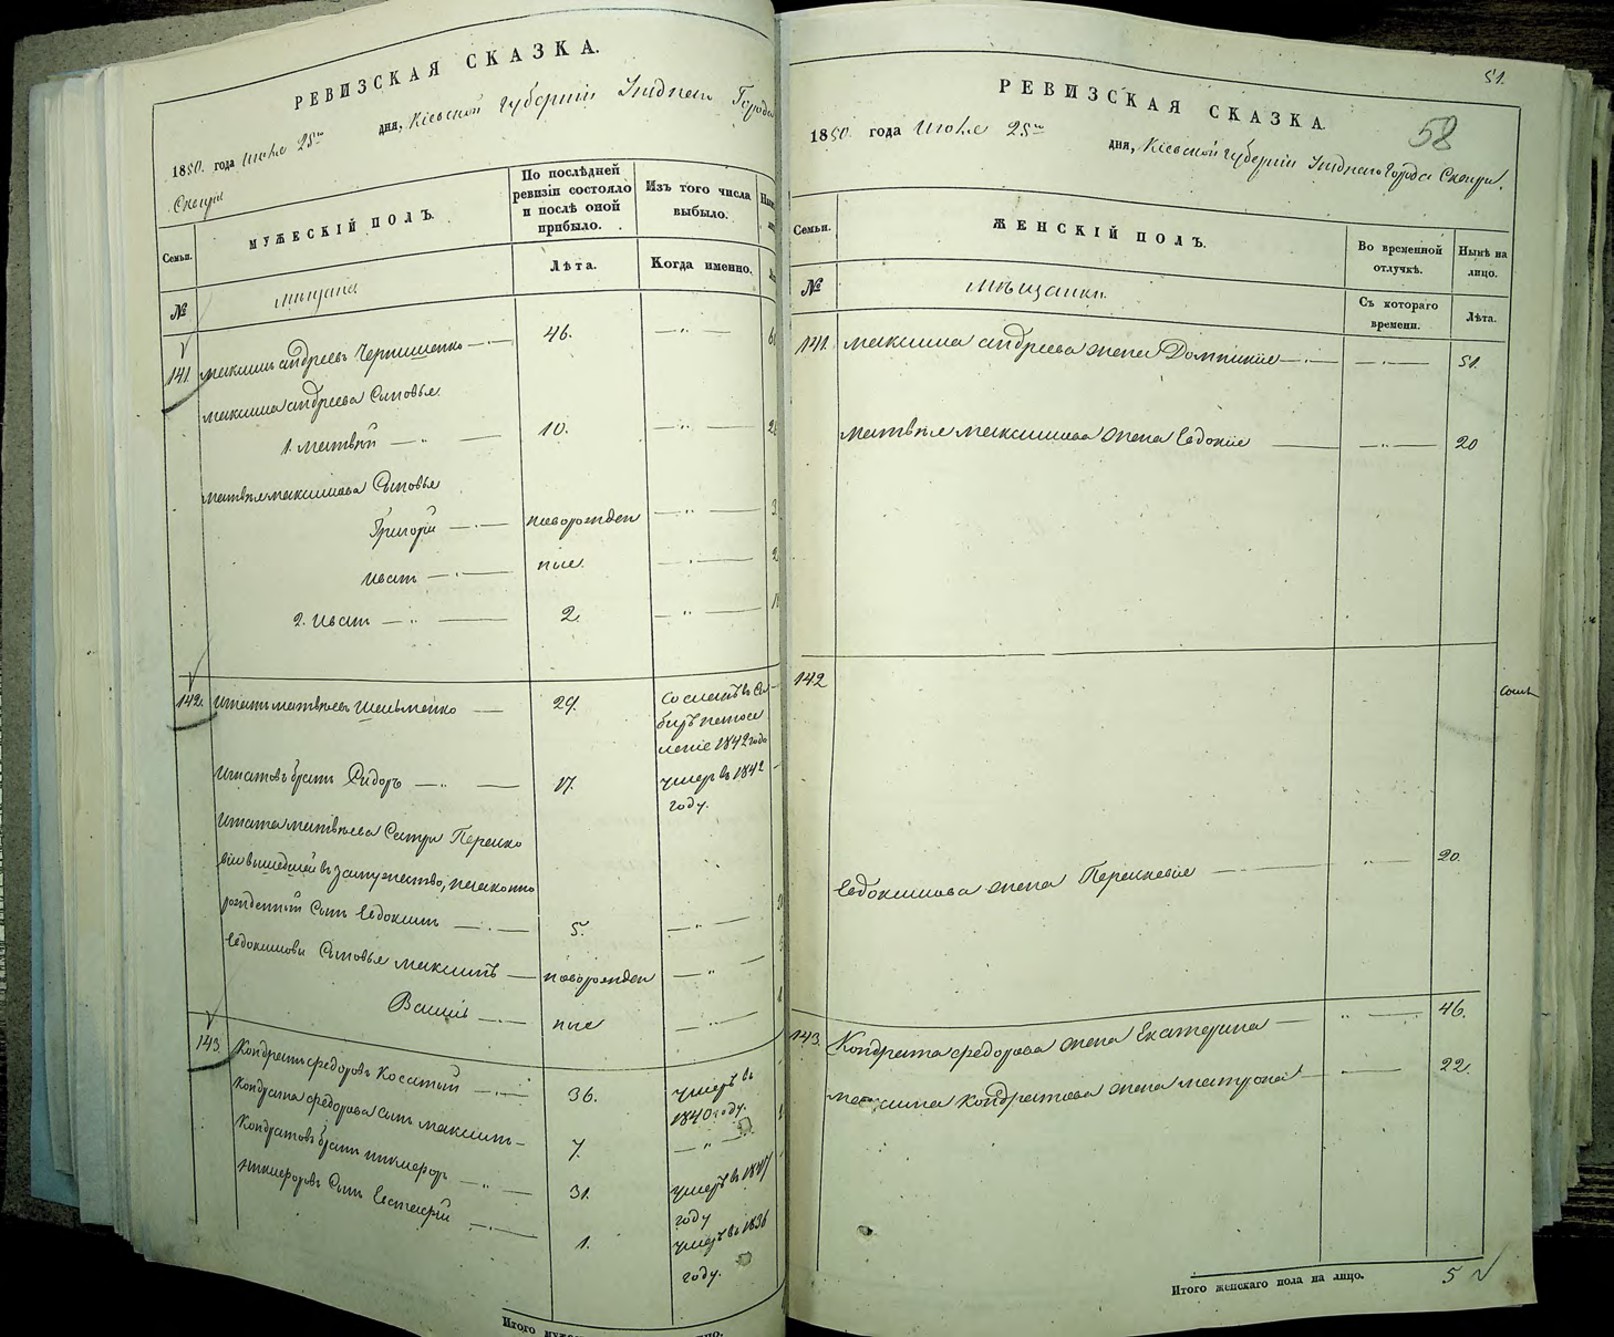 РЕВИЗСКАЯ СКАЗКА.
1850. года Июля 25го дня, Кіевской губерніи Уѣзднаго Города
Сквиры
Семьи.
МУЖЕСКІЙ ПОЛЪ.
По послѣдней ревизіи состояло и послѣ оной прибыло.
Изъ того числа выбыло.
№
мѣщане
Лѣта.
Когда именно.
141. Максимъ Андреевъ Чернишенко — 46. — " —
Максима Андреева Сыновья
1. Матвѣй — " — 10. — " —
Матвѣя Максимова Сыновья
Григорій — новорожден — " —
Иванъ — ные. — " —
2. Иванъ — " — 2. — " —
142. Игнатъ Матвѣевъ Шельменко — 29. Сосланъ въ Си
биръ на посе
леніе 1842 года
Игнатовъ братъ Сидоръ — " — 17. умеръ въ 1842
году.
Игната Матвѣева Сестры Параско
віи вышедшей въ замужество, незаконно
рожденный Сынъ Евдокимъ — 5. — " —
Евдокимовы Сыновья Максимъ — новорожден — " —
Василь — ные — " —
143. Кондратъ Федоровъ Косатый — 36. умеръ въ
1840 году.
Кондрата Федорова Сынъ Максимъ — 7. — " —
Кондратовъ братъ Никифоръ — " — 31. умеръ въ 1847
году
Никифоровъ Сынъ Евстафій — 1. умеръ въ 1836
году.
Итого
51.
РЕВИЗСКАЯ СКАЗКА.
58
1850. года Июля 25го дня, Кіевской губерніи Уѣзднаго Города Сквиры.
Семьи.
ЖЕНСКІЙ ПОЛЪ.
Во временной отлучкѣ.
Нынѣ на лицо.
№
мѣщанки.
Съ котораго времени.
Лѣта.
141. Максима Андреева жена Домникія — " — 51.
Матвѣя Максимова жена Евдокія — " — 20
142
Евдокимова жена Параскевія — 20.
143. Кондрата Федорова жена Екатерина — " — 46.
Максима Кондратова жена Матрона — 22.
Итого женскаго пола на лицо. 5